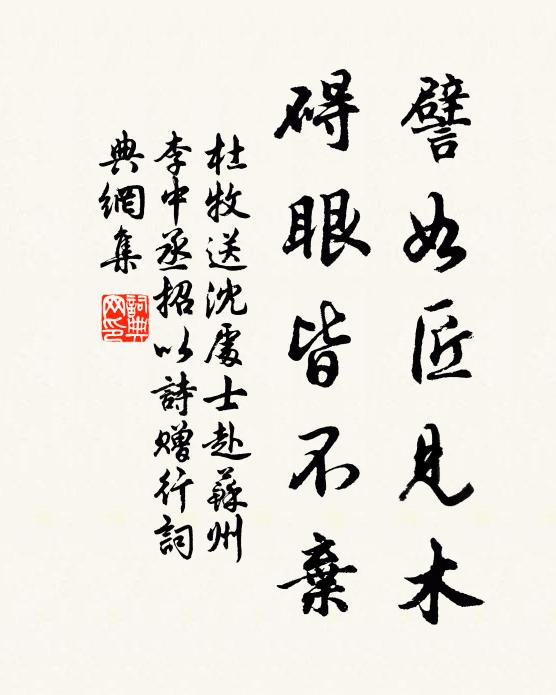 譬如匠見木
碍眼皆不棄
杜牧送沈處士赴蘇州
李中丞招以詩贈行詞
典網集
詞典
网印